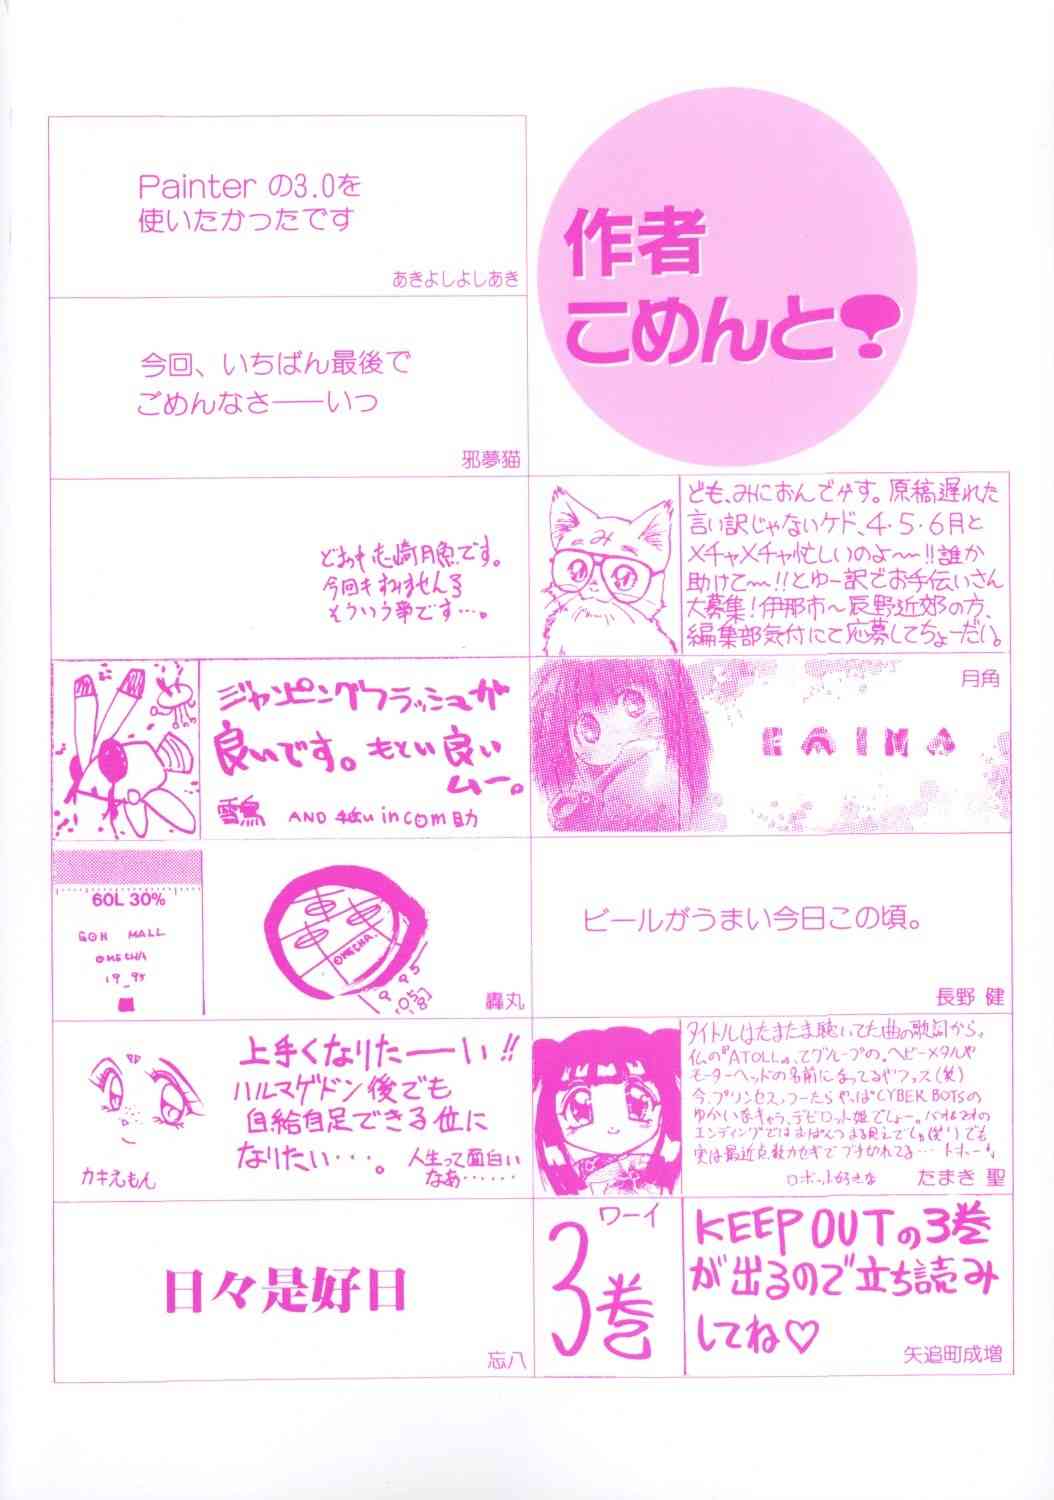 作者
こめんと
Painter の3.0を
使いたかったです
あきよしよしあき
今回、いちばん最後で
ごめんなさ――いつ
邪夢猫
今回も
そういう事です…。
み
ども、みにおんでやす。原稿遅れた
言い訳じゃないケド、4・5・6月と
メチャメチャ忙しいのよ〜!!誰か
助けて〜!!とゆー訳でお手伝いさん
大募集!伊那市〜辰野近郊の方、
編集部気付にて応募してちょーだい。
ジャンピングフラッシュが
良いです。もとい良い
ムー。
AND in com助
月角
60L 30%
GOH MALL
OMECHA
19_95
OMECHA.
轟丸
ビールがうまい今日この頃。
長野 健
上手くなりたーーい!!
ハルマゲドン後でも
自給自足できる位に
なりたい・・・。
人生って面白い
なあ……
カキえもん
タイトルはたまたま聴いてた曲の歌詞から。
仏の『ATOLL』ってグループの。ヘビーメタルや
モーターヘッドの名前に
今、プリンセスっつーたらやっぱCYBER BOTSの
ゆかいなキャラ、デビロット姫でしょー。
エンディングでは
実は最近点数カセギでブチ切れてる…
ロボット好きな たまき 聖
日々是好日
忘八
ワーイ
3巻
KEEP OUTの3巻
が出るので立ち読み
してね♡
矢追町成増